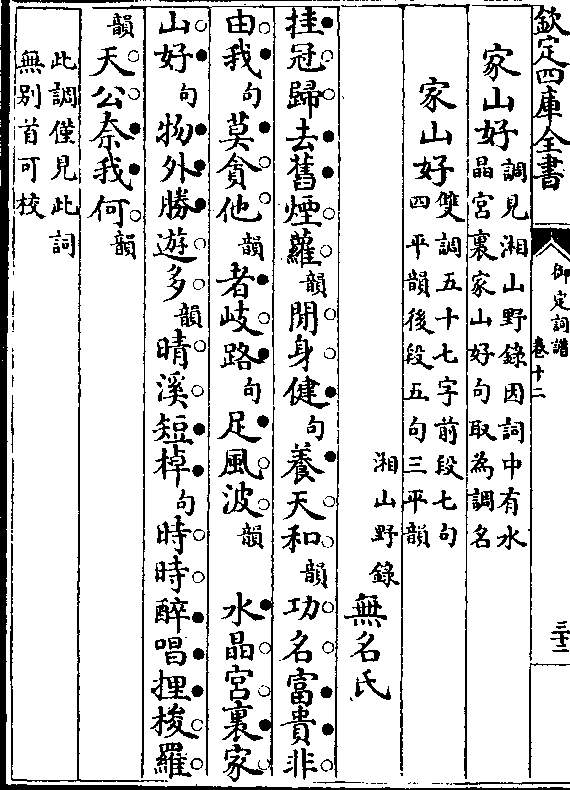 欽定四庫全書
御定詞譜 卷十二
三十二
家山好 調見湘山野錄因詞中有水
晶宮裏家山好句取為調名
家山好 雙調五十七字前段七句
四平韻後段五句三平韻
湘山野錄 無名氏
挂冠歸去舊煙蘿韻閒身健句養天和韻功名富貴非
由我句莫貪他韻者岐路句足風波韻 水晶宮裏家
山好句物外勝遊多韻晴溪短棹句時時醉唱捚梭羅
韻天公奈我何韻
此調僅見此詞
無别首可校